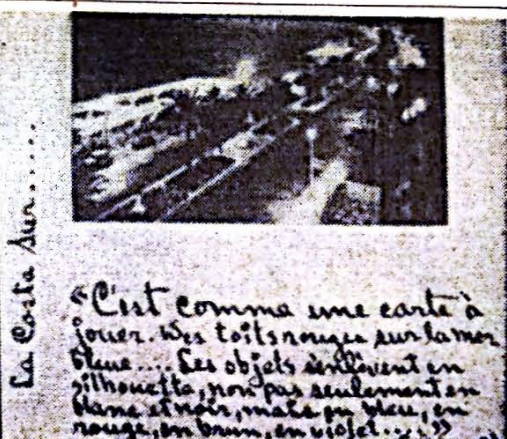 La Costa Sur......
"C'est comme une carte à
jouer. Des toits rouges sur la mer
bleue.... Les objets s'enlèvent en
silhouette, non pas seulement en
blanc et noir, mais en bleu, en
rouge, en brun, en violet...."